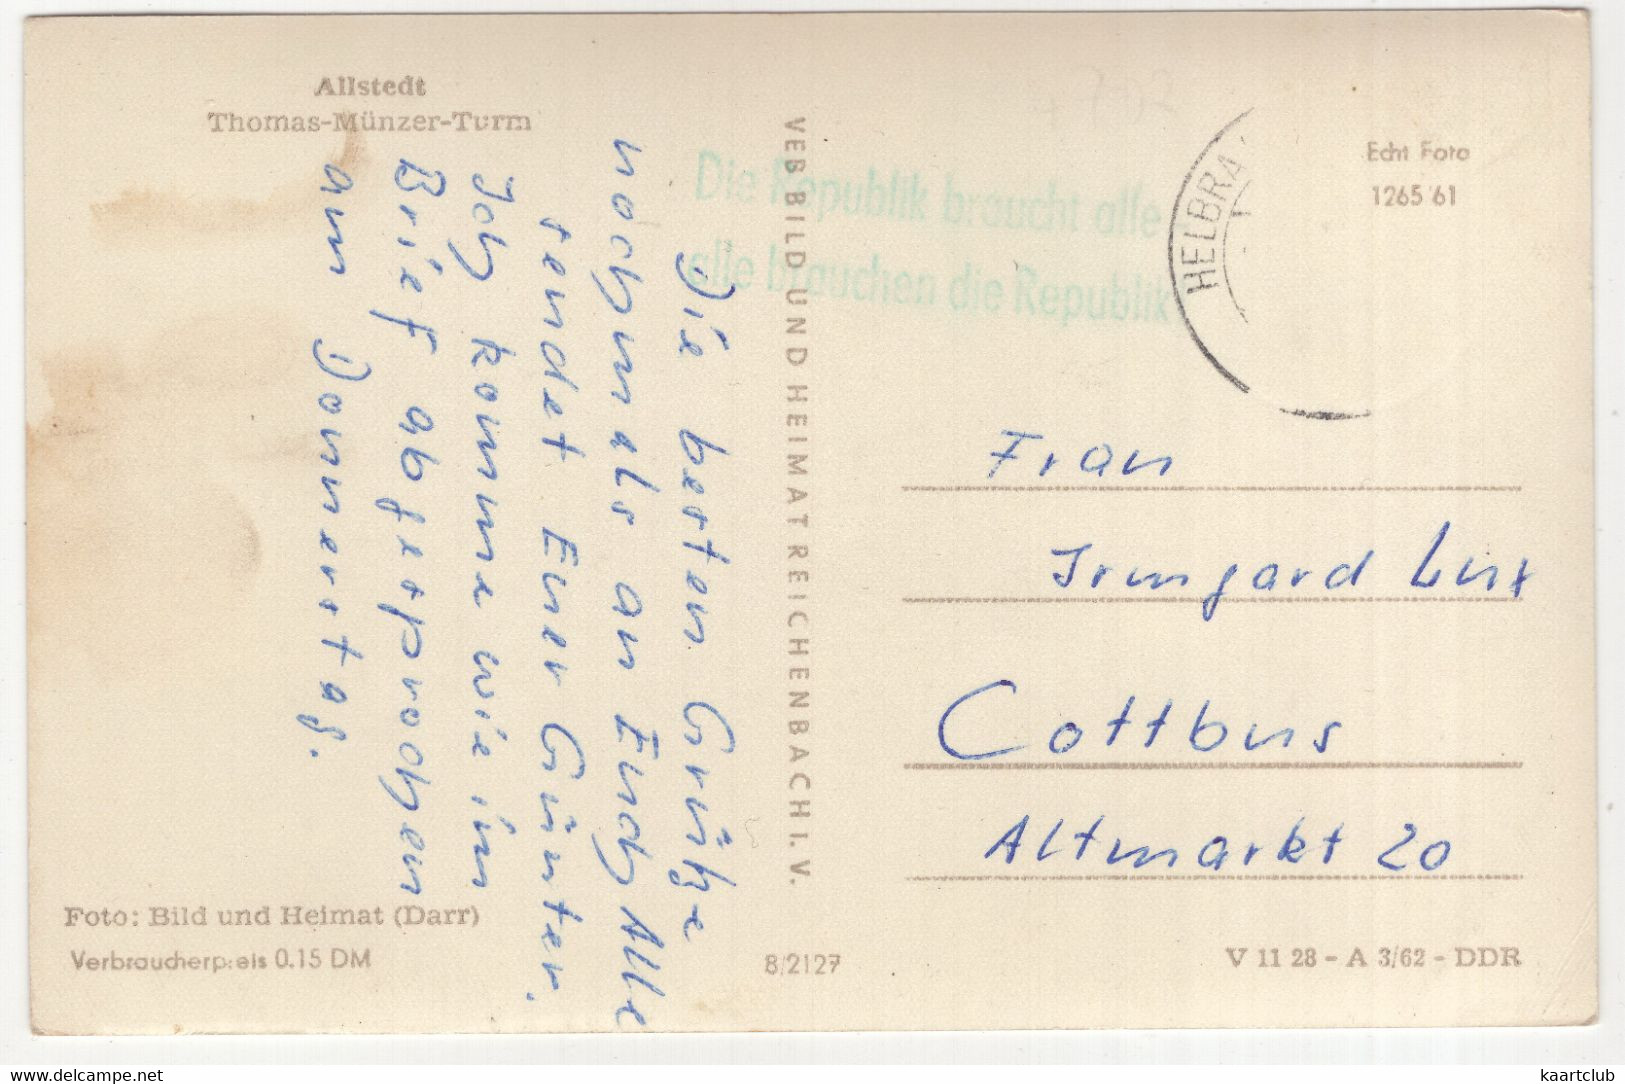 Allstedt
Thomas-Münzer-Turm
Die besten Grüße
nochmals an Euch Alle
sendet Euer Günter.
Ich komme wie im
Brief abgesprochen
am Donnerstag.
Foto: Bild und Heimat (Darr)
Verbraucherpreis 0.15 DM
VEB BILD UND HEIMAT REICHENBACH I. V.
8/2127
Die Republik braucht alle
alle brauchen die Republik
HELBRA
Echt Foto
1265/61
Frau
Irmgard
Cottbus
Altmarkt 20
V 11 28 - A 3/62 - DDR
www.delcampe.net
kaartclub